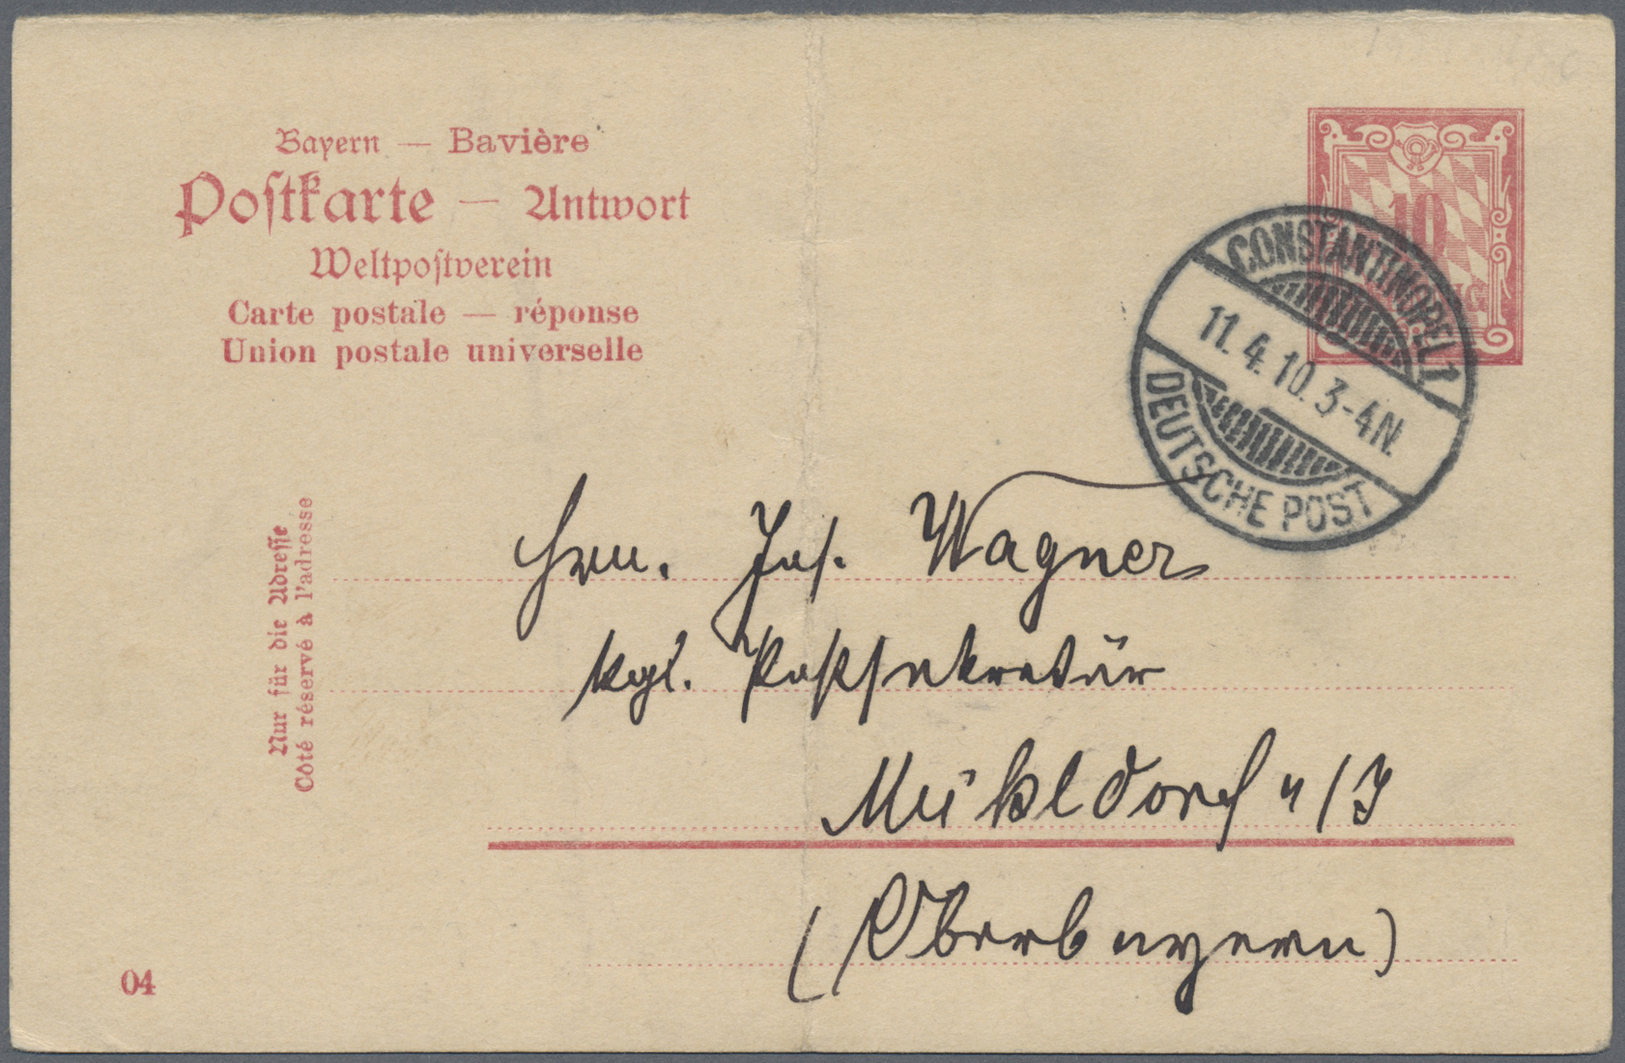 Bayern — Bavière
Postkarte — Antwort
Weltpostverein
Carte postale — réponse
Union postale universelle
10
CONSTANTINOPEL 1
11. 4. 10. 3-4N.
DEUTSCHE POST
Nur für die Adresse
Côté réservé à l'adresse
Hrn. Jos. Wagner
kgl. Postsekretär
Mühldorf a/J
(Oberbayern)
04